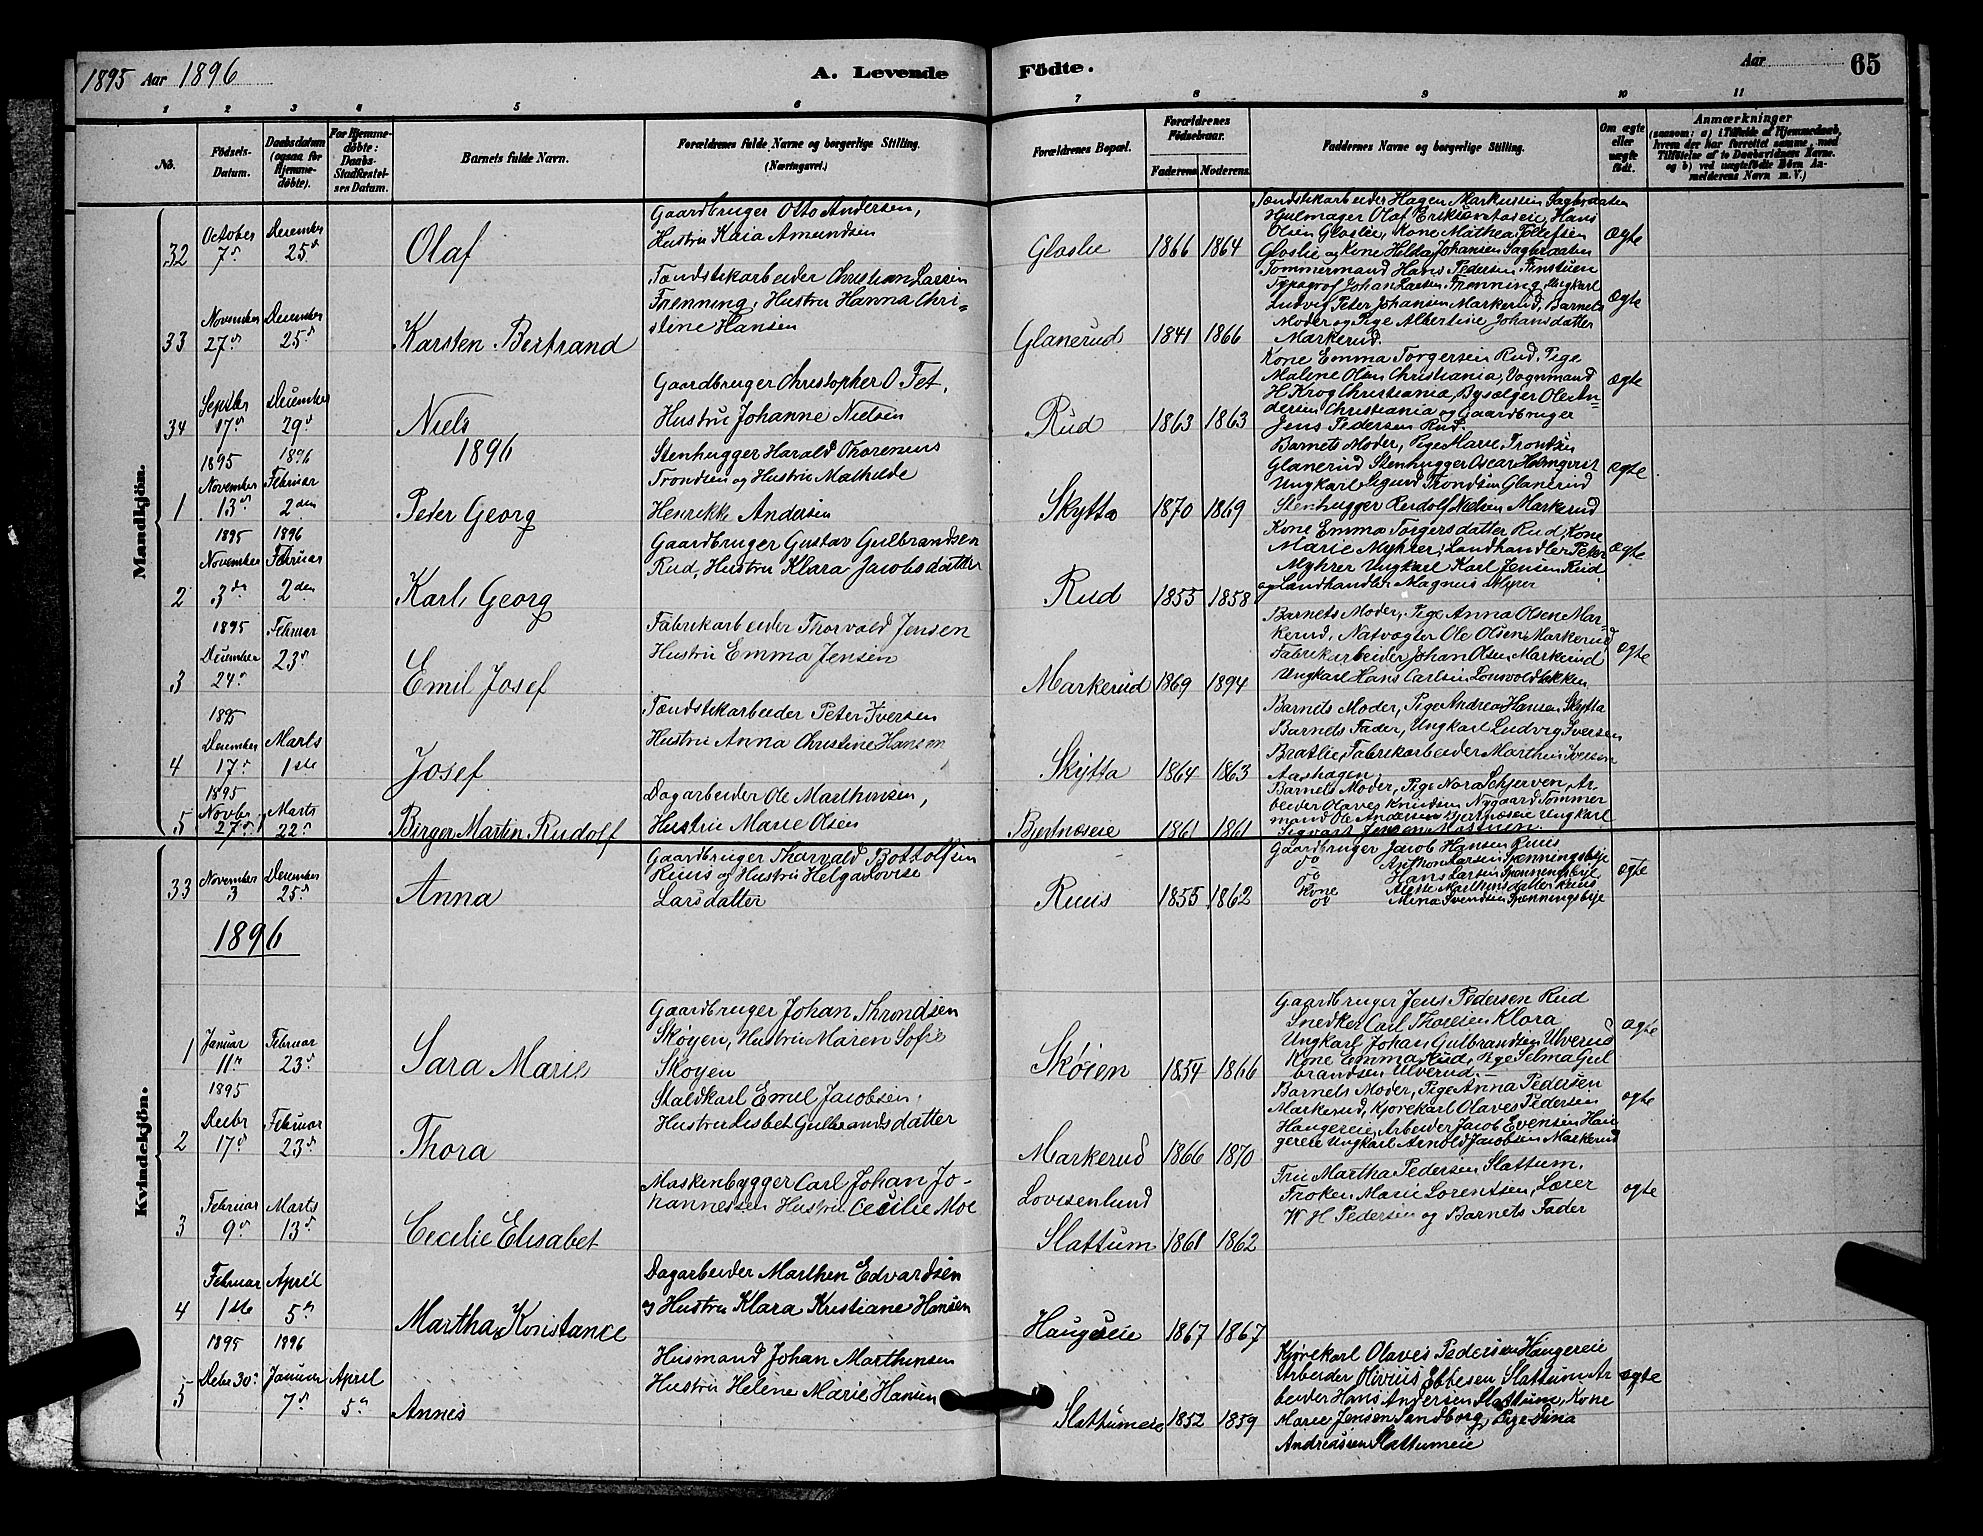 1895 Aar 1896
A. Levende Födte.
Aar 65
1 2 3 4 5 6 7 8 9 10 11
No.
Födsels-Datum.
Daabsdatum (ogsaa for Hjemmedöbte).
For Hjemmedöbte: Daabs-Stadfæstelses Datum.
Barnets fulde Navn.
Forældrenes fulde Navne og borgerlige Stilling.
(Næringsvei.)
Forældrenes Bopæl.
Forældrenes Födselsaar.
Faderens Moderens
Faddernes Navne og borgerlige Stilling.
Om ægte eller uægte födt.
Anmærkninger
(saasom: a) i Tilfælde af Hjemmedaab, hvem der har forrettet samme, med Tilföielse af to Daabsvidners Navne. og b) ved uægtefödte Börn Anmelderens Navn m. V.)
Mandkjön.
32 October 7de December 25de Olaf
Gaardbruger Otto Andersen,
Hustru Kaia Amundsen
Gloslie 1866 1864
Tændstikarbeider Hagen Markussen Sagbraaten
Hjulmager Olaf Eriksen, Hans
Olsen Gloslie, Kone Mathea Tollefsen
Gloslie og Kone Hilda Johansen Sagbraaten
ægte
33 November 27de December 25de Karsten Bertrand
Tændstikarbeider Christian Larsen
Frenning, Hustru Hanna Chri-
stine Hansen
Glanerud 1841 1866
Tømmermand Hans Pedersen Finstuen
Typograf Johan Larsen Frenning, Ungkarl
Ludvig Peter Johansen Markerud, Barnets
Moder og Pige Albertine Johansdatter
Markerud.
ægte
34 Septbr 17de December 29de Niels
Gaardbruger Christopher O. Fet,
Hustru Johanne Nielsen
Rud 1863 1863
Kone Emma Torgersen Rud, Pige
Malene Olsen Christiania, Vognmand
H Krog Christiania, Bysælger Ole An-
dersen Christiania og Gaardbruger
Jens Pedersen Rud.
ægte
1896
1 1895 November 13de 1896 Februar 2den Peder Georg
Stenhugger Harald Thorenius
Trondsen og Hustru Mathilde
Henrikke Andersen
Skytta 1870 1869
Barnets Moder, Pige Marie Trondsen
Glanerud Stenhugger Oscar Holmqvist
Ungkarl Sigurd Trondsen Glanerud
Stenhugger Rudolf Nielsen Markerud
ægte
2 1895 November 3de 1896 Februar 2den Karl Georg
Gaardbruger Gustav Gulbrandsen
Rud, Hustru Klara Jacobsdatter
Rud 1855 1858
Kone Emma Torgersdatter Rud, Kone
Marie Myhrer, Landhandler Peter
Myhrer Ungkarl Karl Jensen Rud
og Landhandler Magnus Myrer
ægte
3 1895 December 24de Februar 23de Emil Josef
Fabrikarbeider Thorvald Jensen
Hustru Emma Jensen
Markerud 1869 1894
Barnets Moder, Pige Anna Olsen Mar-
kerud, Natvægter Ole Olsen Markerud
Fabrikarbeider Johan Olsen Markerud
Ungkarl Hans Carlsen
ægte
4 1895 December 17de Marts 1ste Josef
Tændstikarbeider Peter Iversen
Hustru Anna Christine Hansen
Skytta 1864 1863
Barnets Moder, Pige Andrea Hansen Skytta
Barnets Fader, Ungkarl Ludvig Iversen
Bratlie, Fabrikarbeider Marthin Iversen
Aashagen.
5 1895 Novbr 27de Marts 22de Birger Martin Rudolf
Dagarbeider Ole Marthinsen,
Hustru Marie Olsen
Bjertnæseie 1861 1861
Barnets Moder, Pige Nora Schjerven, Ar-
beider Olaves Knudsen Nygaard Tømmer
mand Ole Andersen Bjertnæseie Ungkarl
Sigvart Jensen
Kvindekjön.
33 November 3 December 25de Anna
Gaardbruger Thorvald Bottolfsen
Ruus og Hustru Helga Lovise
Larsdatter
Ruus 1855 1862
Gaardbruger Jacob Hansen Ruus
do Anthon Larsen Spenningsbye
do Hans Larsen Spenningsbye
Kone Marthinsdatter Ruus
do Mina Svendsen Spenningsbye
ægte
1896
1 Januar 11te Februar 23de Sara Marie
Gaardbruger Johan Throndsen
Skøyen, Hustru Maren Sofie
Skøyen
Skøien 1854 1866
Gaardbruger Jens Pedersen Rud
Snedker Carl Thorsen Klora
Ungkarl Johan Gulbrandsen Ulverud
Kone Emma Rud, Pige Selma Gul
brandsen Ulverud.
ægte
2 1895 Decbr 17de Februar 23de Thora
Staldkarl Emil Jacobsen,
Hustru Lisbet Gulbrandsdatter
Markerud 1866 1870
Barnets Moder, Pige Anna Pedersen
Markerud, Kjørekarl Olaves Pedersen
Haugereie, Arbeider Jacob Evensen Hau
gereie Ungkarl Arnold Jacobsen Markerud
ægte
3 Februar 9de Marts 13de Cecilie Elisabet
Maskenbygger Carl Johan Jo-
hannessen Hustru Cecilie Moe
Lovisenlund
Slattum 1861 1862
Fru Martha Pedersen Slattum,
Frøken Marie Lorentsen, Lærer
W H Pedersen og Barnets Fader
ægte
4 Februar 1ste April 5te Martha Konstance
Dagarbeider Marthen Edvardsen
og Hustru Klara Kristiane Hansen
Haugereie 1867 1867
5 1895 Debr 30te 1896 Januar 7de April 5te Annie
Husmand Johan Marthinsen
Hustru Helene Marie Hansen
Slattumeie 1852 1859
Kjørekarl Olaves Pedersen Haugereie
Arbeider Olivius Ebbesen Slattum Ar
beider Hans Andersen Slattum, Kone
Marie Jensen Sandborg, Pige Tina
Andreassen Slattumeie
ægte